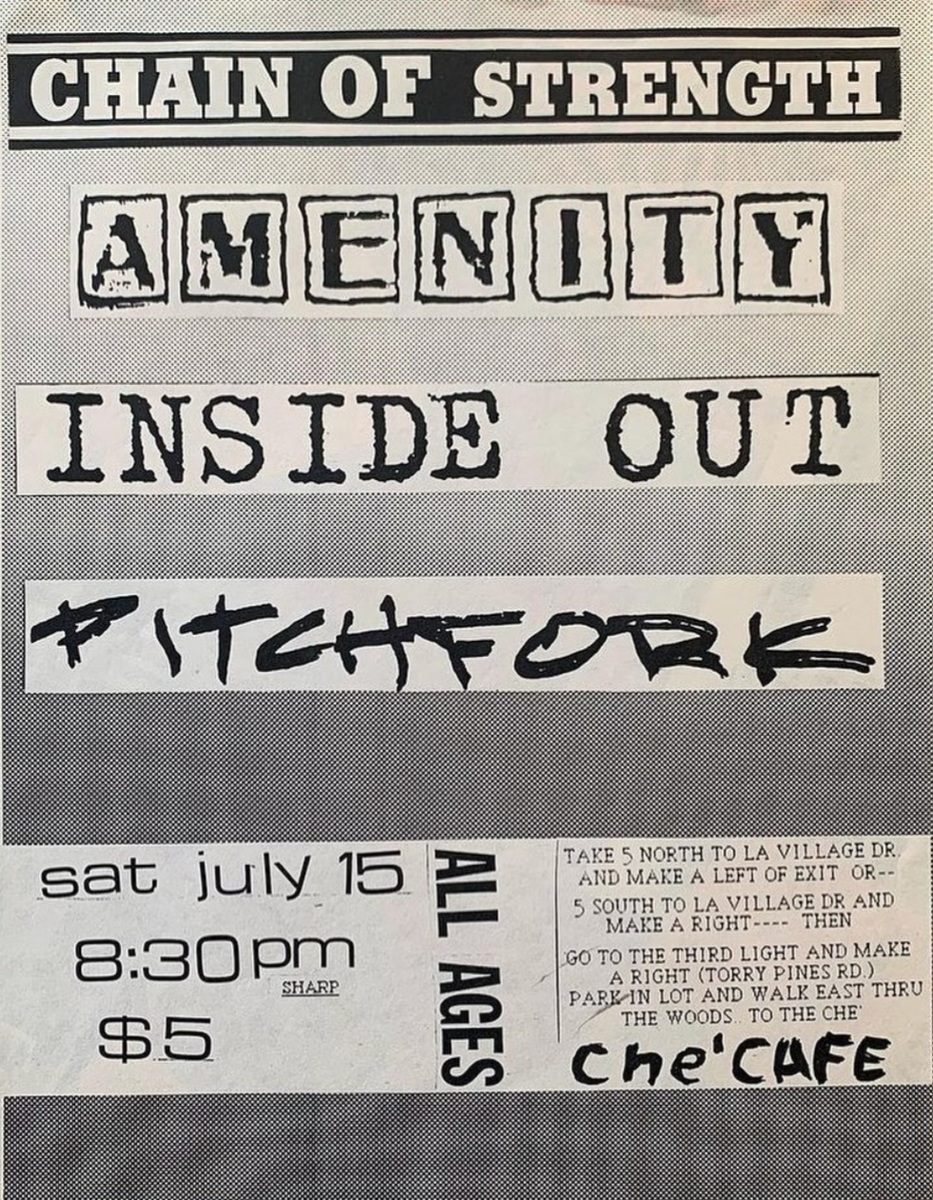 CHAIN OF STRENGTH
AMENITY
INSIDE OUT
PITCHFORK
sat july 15
8:30pm
SHARP
$5
ALL AGES
TAKE 5 NORTH TO LA VILLAGE DR.
AND MAKE A LEFT OF EXIT OR--
5 SOUTH TO LA VILLAGE DR AND
MAKE A RIGHT---- THEN
GO TO THE THIRD LIGHT AND MAKE
A RIGHT (TORRY PINES RD.)
PARK IN LOT AND WALK EAST THRU
THE WOODS.. TO THE CHE'
Che'CAFE